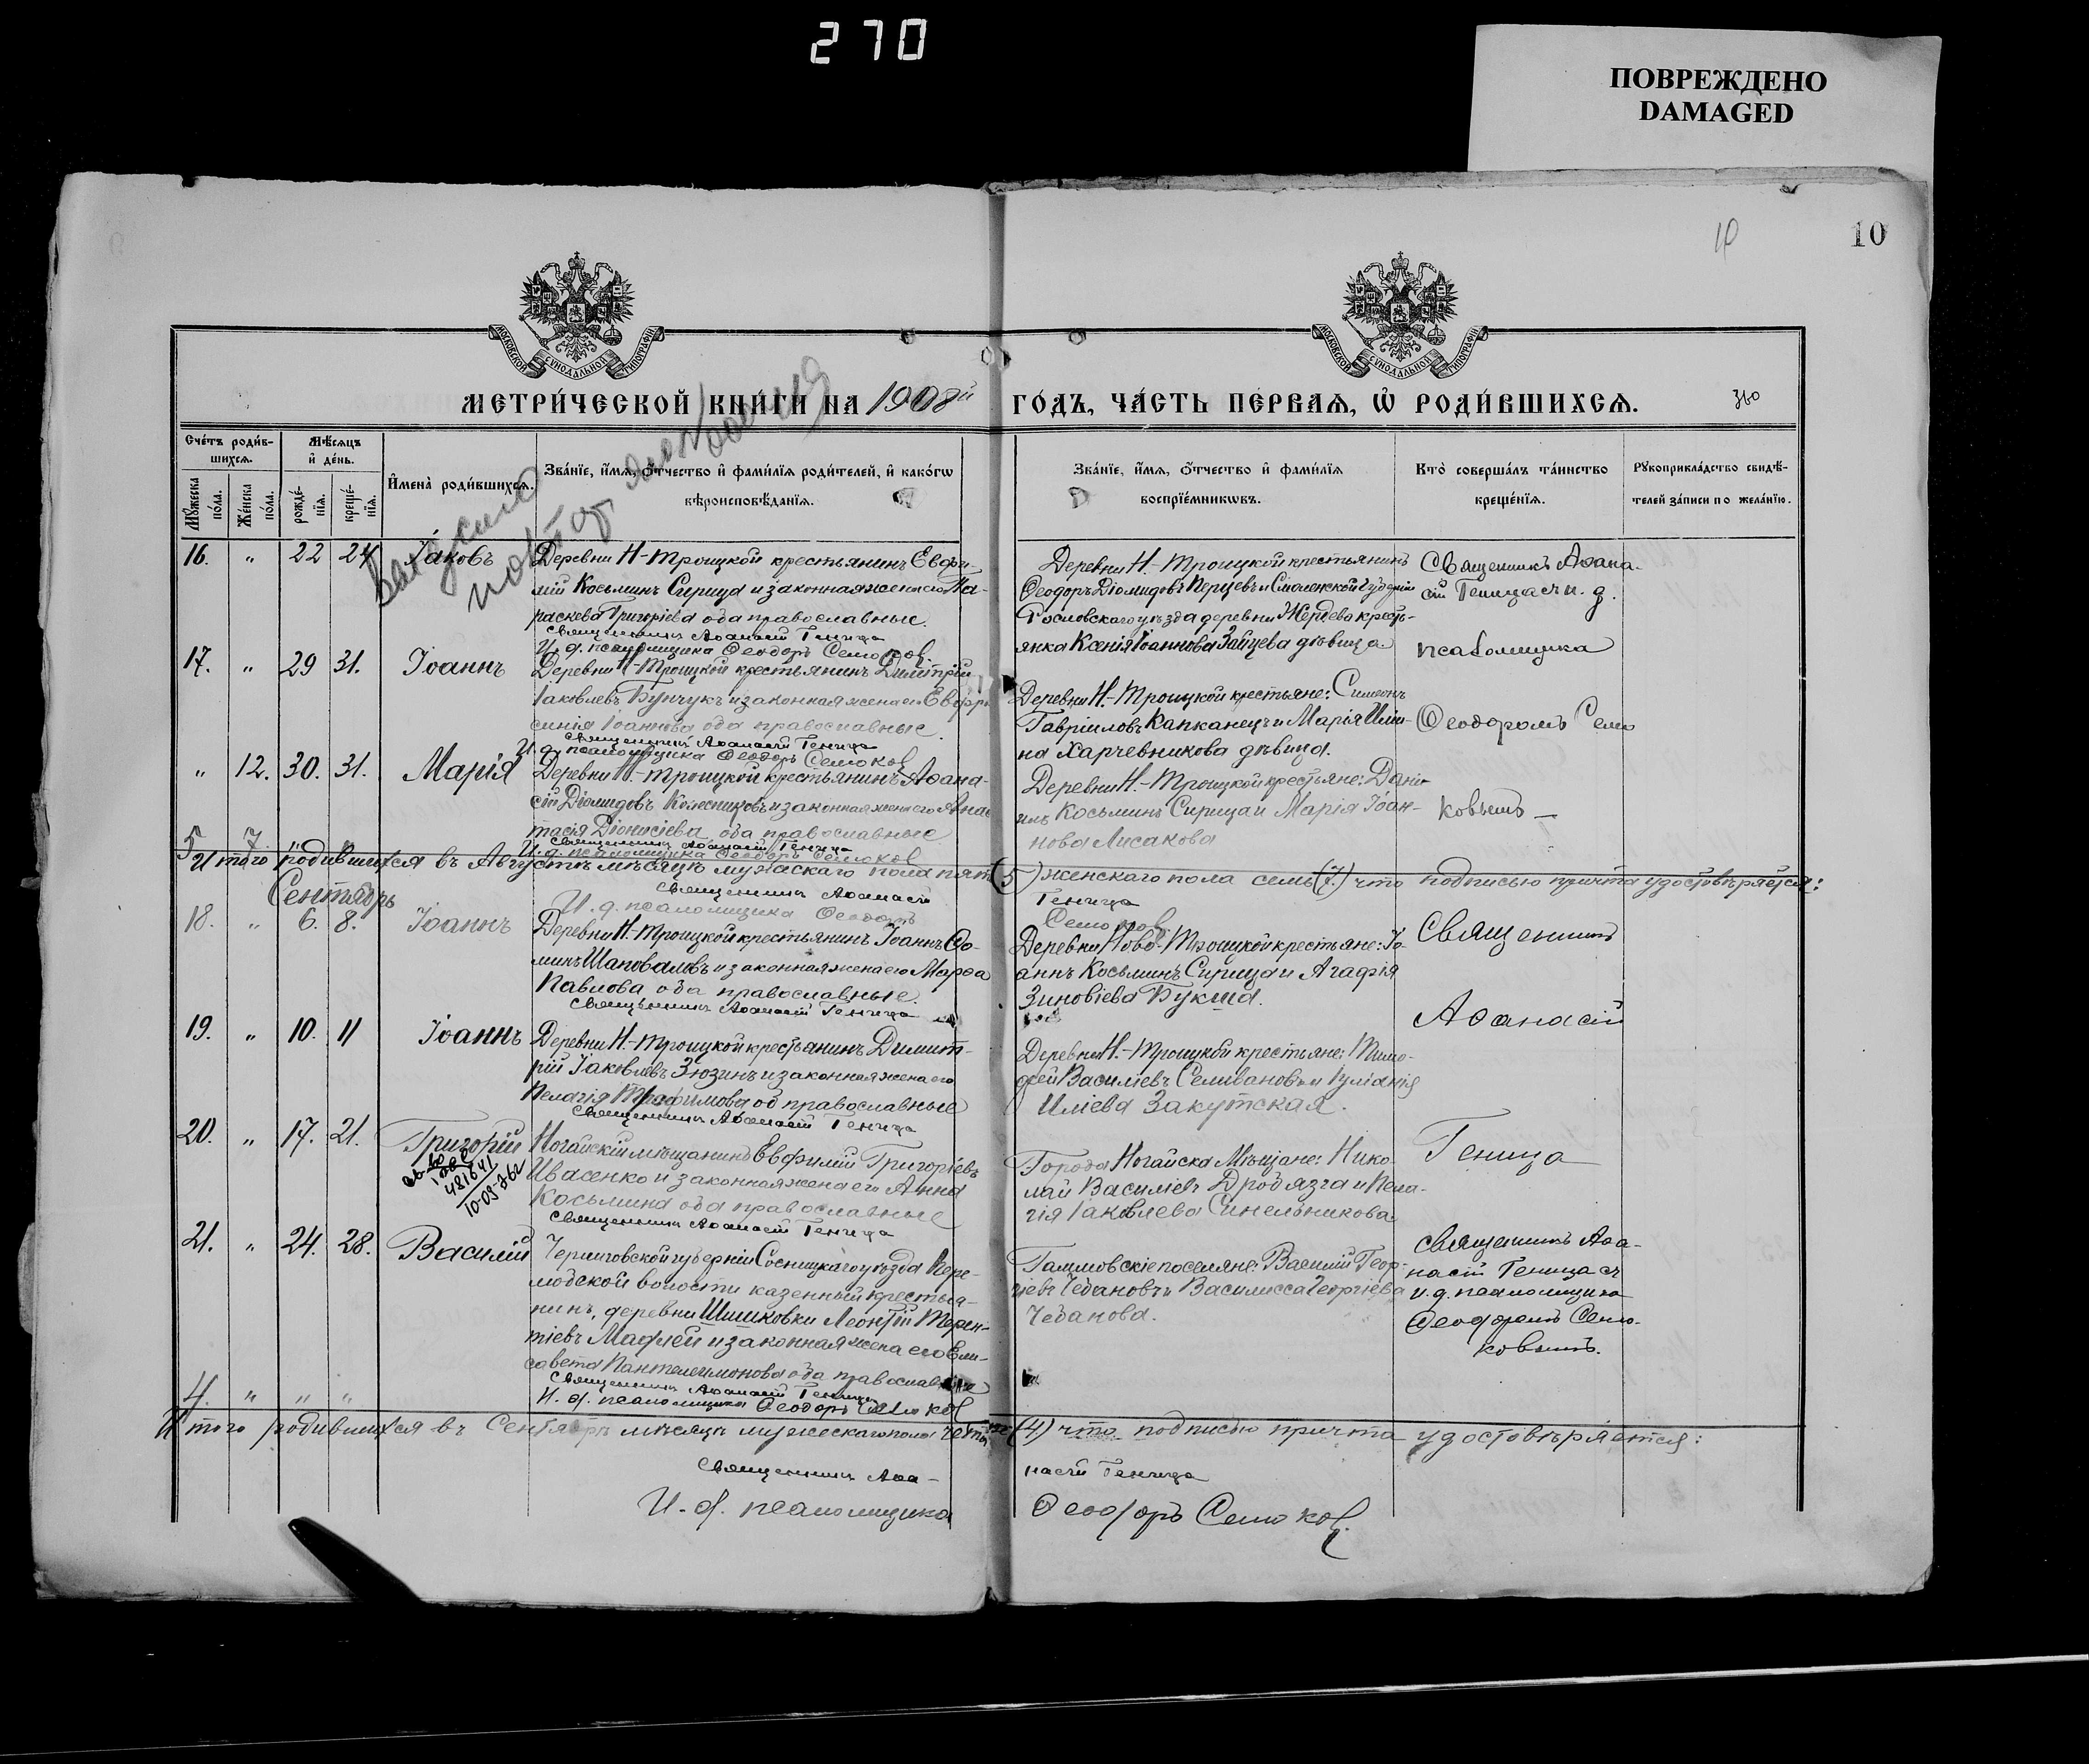 270
ПОВРЕЖДЕНО
DAMAGED
10
10
МОСКОВСКОЙ СѴНОДАЛЬНОЙ ТИПОГРАФІИ
МОСКОВСКОЙ СѴНОДАЛЬНОЙ ТИПОГРАФІИ
МЕТРИ́ЧЕСКОЙ КНИ́ГИ НА 1908й ГО́ДЪ, ЧА́СТЬ ПЕ́РВАѦ, Ѡ РОДИ́ВШИХСѦ.
360
Сче́тъ роди́в-
шихсѧ.
Мѣ́сѧцъ
и де́нь.
Мꙋ́жеска по́ла.
Же́нска по́ла.
рожде́-
нїѧ.
креще́-
нїѧ.
Имена̀ роди́вшихсѧ.
Зва́нїе, и́мѧ, о́тчество и фами́лїѧ роди́телей, и како́гѡ
вѣроисповѣ́данїѧ.
Зва́нїе, и́мѧ, о́тчество и фами́лїѧ
воспрїе́мникѡвъ.
Кто̀ соверша́лъ та́инство
креще́нїѧ.
Рꙋкоприкла́дство свидѣ́-
телей за́писи по жела́нїю.
16. " 22 24 Іаковъ
Деревни Н-Троицкой крестьянинъ Евфи-
мій Косьминъ Сирица и законная жена его Па-
раскева Григоріева оба православные.
Священникъ Аѳанасій Геница
И. д. псаломщика Ѳеодоръ Семоков
Деревни Н.-Троицкой крестьянинъ
Ѳеодоръ Діомидовъ Перцевъ и Смоленской губерніи
Рословскаго уѣзда деревни Жердево кресть-
янка Ксенія Іоаннова Зайцева дѣвица.
Священникъ Аѳана-
сій Геница съ и. д.
псаломщика
17. " 29 31. Іоаннъ
Деревни Н-Троицкой крестьянинъ Димитрій
Іаковлевъ Бунчукъ и законная жена его Евфро
синія Іоаннова оба православные.
Священникъ Аѳанасій Геница
И. д. псаломщика Ѳеодоръ Семоков
Деревни Н.-Троицкой крестьяне: Симеонъ
Гавріиловъ Капканецъ и Марія Иліи-
на Харчевникова дѣвица.
Ѳеодоромъ Семо
" 12. 30. 31. Марія
Деревни Н.-Троицкой крестьянинъ Аѳана-
сій Діомидовъ Колесниковъ и законная жена его Анас
тасія Діонисіева оба православные
Священникъ Аѳанасій Геница
И. д. псаломщика Ѳеодоръ Семоков
Деревни Н.-Троицкой крестьяне: Дани
илъ Косьминъ Сирица и Марія Іоан-
нова Лисакова
ковымъ
5 7. "
Итого родившихся въ Августѣ мѣсяцѣ мужескаго пола пять (5) женскаго пола семь (7.) что подписью причта удостовѣряется:
Священникъ Аѳанасій Геница
И. д. псаломщика Ѳеодоръ Семоков
Сентябрь
18. " 6. 8. Іоаннъ
Деревни Н-Троицкой крестьянинъ Іоаннъ Ѳо-
минъ Шаповаловъ и законная жена его Марѳа
Павлова оба православные.
Священникъ Аѳанасій Геница
Деревни Ново-Троицкой крестьяне: Іо
аннъ Косьминъ Сирица и Агафія
Зиновіева Букша.
Священникъ
Аѳанасій
19. " 10. 11 Іоаннъ
Деревни Н.-Троицкой крестьянинъ Димит-
рій Іаковлевъ Зюзинъ и законная жена его
Пелагія Трофимова об православные
Священникъ Аѳанасій Геница
Деревни Н.-Троицкой крестьяне: Тимо-
фей Василіевъ Селивановъ и Іуліанія
Иліева Закутская.
20. " 17. 21. Григорій
481641
Ногайскій мѣщанинъ Евфимій Григоріевъ
Ивасенко и законная жена его Анна
Косьмина оба православные
Священникъ Аѳанасій Геница
Города Ногайска Мѣщане: Нико-
лай Василіевъ Дробязга и Пела-
гія Іаковлева Синельникова
Геница
21. " 24. 28. Василій
Черниговской губерніи Сосницкаго уѣзда Пере-
любской волости казенный крестья-
нинъ, деревни Шишковки Леонтій Терен-
тіевъ Мафлей и законная жена его Ели-
савета Пантелеимонова оба православные
Священникъ Аѳанасій Геница
И. д. псаломщика Ѳеодоръ Семоков
Гаммовскіе поселяне: Василій Геор-
гіевъ Чебановъ и Василисса Георгіева
Чебанова.
Священникъ Аѳа-
насій Геница съ
и. д. псаломщика
Ѳеодоромъ Семо-
ковымъ.
4. " " "
Итого родившихся въ Сентябрѣ мѣсяцѣ мужескаго пола четыре (4) что подписью причта удостовѣряется:
Священникъ Аѳа-
насій Геница
И. д. псаломщика Ѳеодоръ Семоков